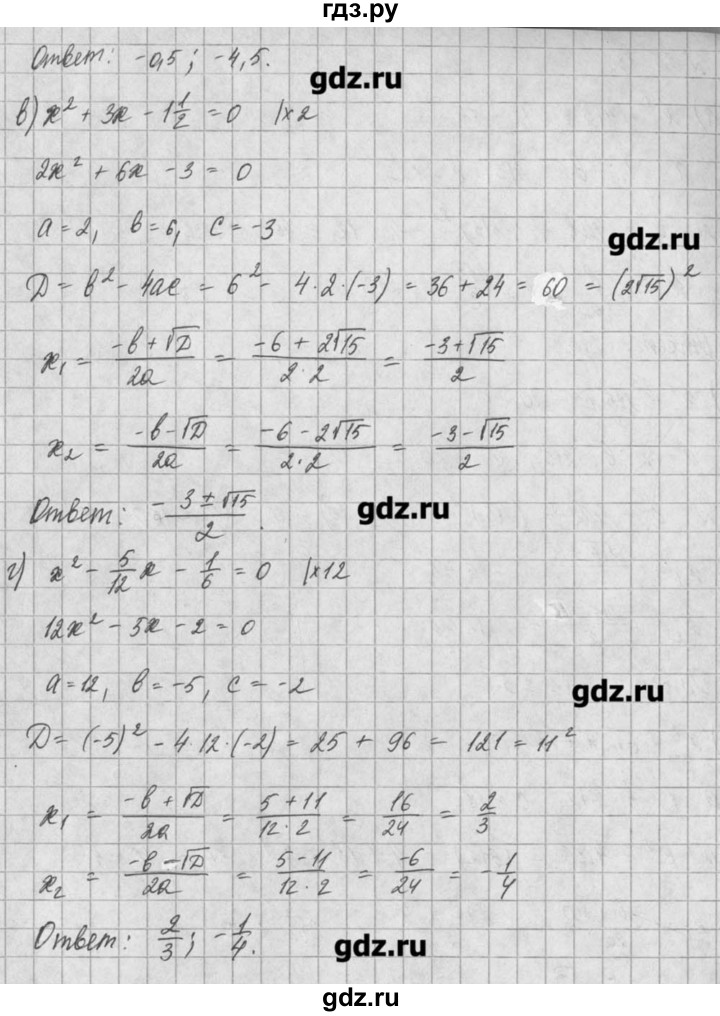 гдз.ру
Ответ: -0,5; -4,5.
gdz.ru
в) x² + 3x - 1 1/2 = 0 |×2
2x² + 6x - 3 = 0
a = 2, b = 6, c = -3
gdz.ru
D = b² - 4ac = 6² - 4·2·(-3) = 36 + 24 = 60 = (2√15)²
x₁ = (-b + √D)/2a = (-6 + 2√15)/(2·2) = (-3 + √15)/2
x₂ = (-b - √D)/2a = (-6 - 2√15)/(2·2) = (-3 - √15)/2
Ответ: - (3 ± √15)/2.
gdz.ru
г) x² - 5/12 x - 1/6 = 0 |×12
12x² - 5x - 2 = 0
a = 12, b = -5, c = -2
gdz.ru
D = (-5)² - 4·12·(-2) = 25 + 96 = 121 = 11²
x₁ = (-b + √D)/2a = (5 + 11)/(12·2) = 16/24 = 2/3
x₂ = (-b - √D)/2a = (5 - 11)/(12·2) = -6/24 = -1/4
Ответ: 2/3; -1/4.
gdz.ru
gdz.ru